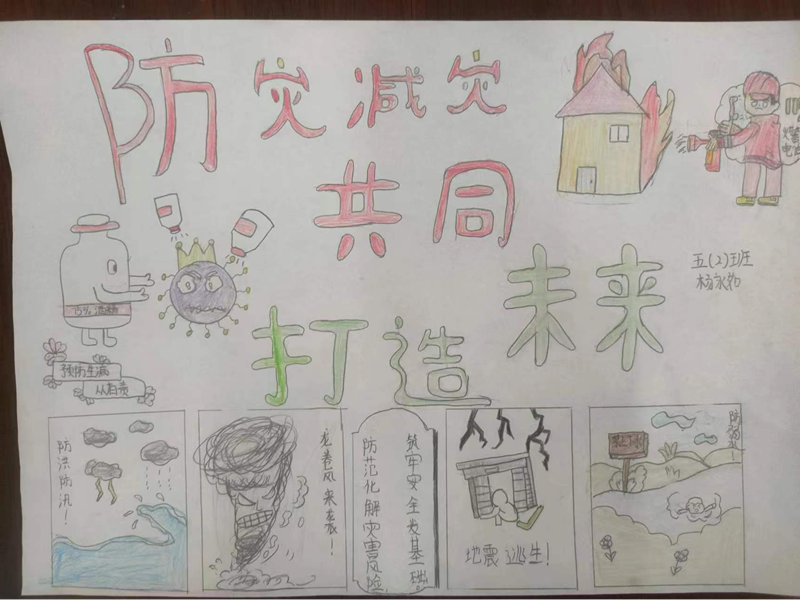 防灾减灾
共同
打造
未来
五(2)班
75%酒精
预防生病
从自我
防洪防汛！
龙卷风来袭！
筑牢安全发基础
防范化解灾害风险
地震逃生！
防溺水！